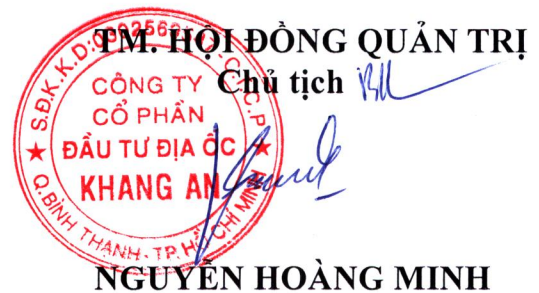 TM. HỘI ĐỒNG QUẢN TRỊ
Chủ tịch
S.Đ.K.K.D:
C.T.C.P
CÔNG TY
CỔ PHẦN
ĐẦU TƯ ĐỊA ỐC
KHANG AN
Q.BÌNH THẠNH-TP.HỒ CHÍ MINH
NGUYỄN HOÀNG MINH